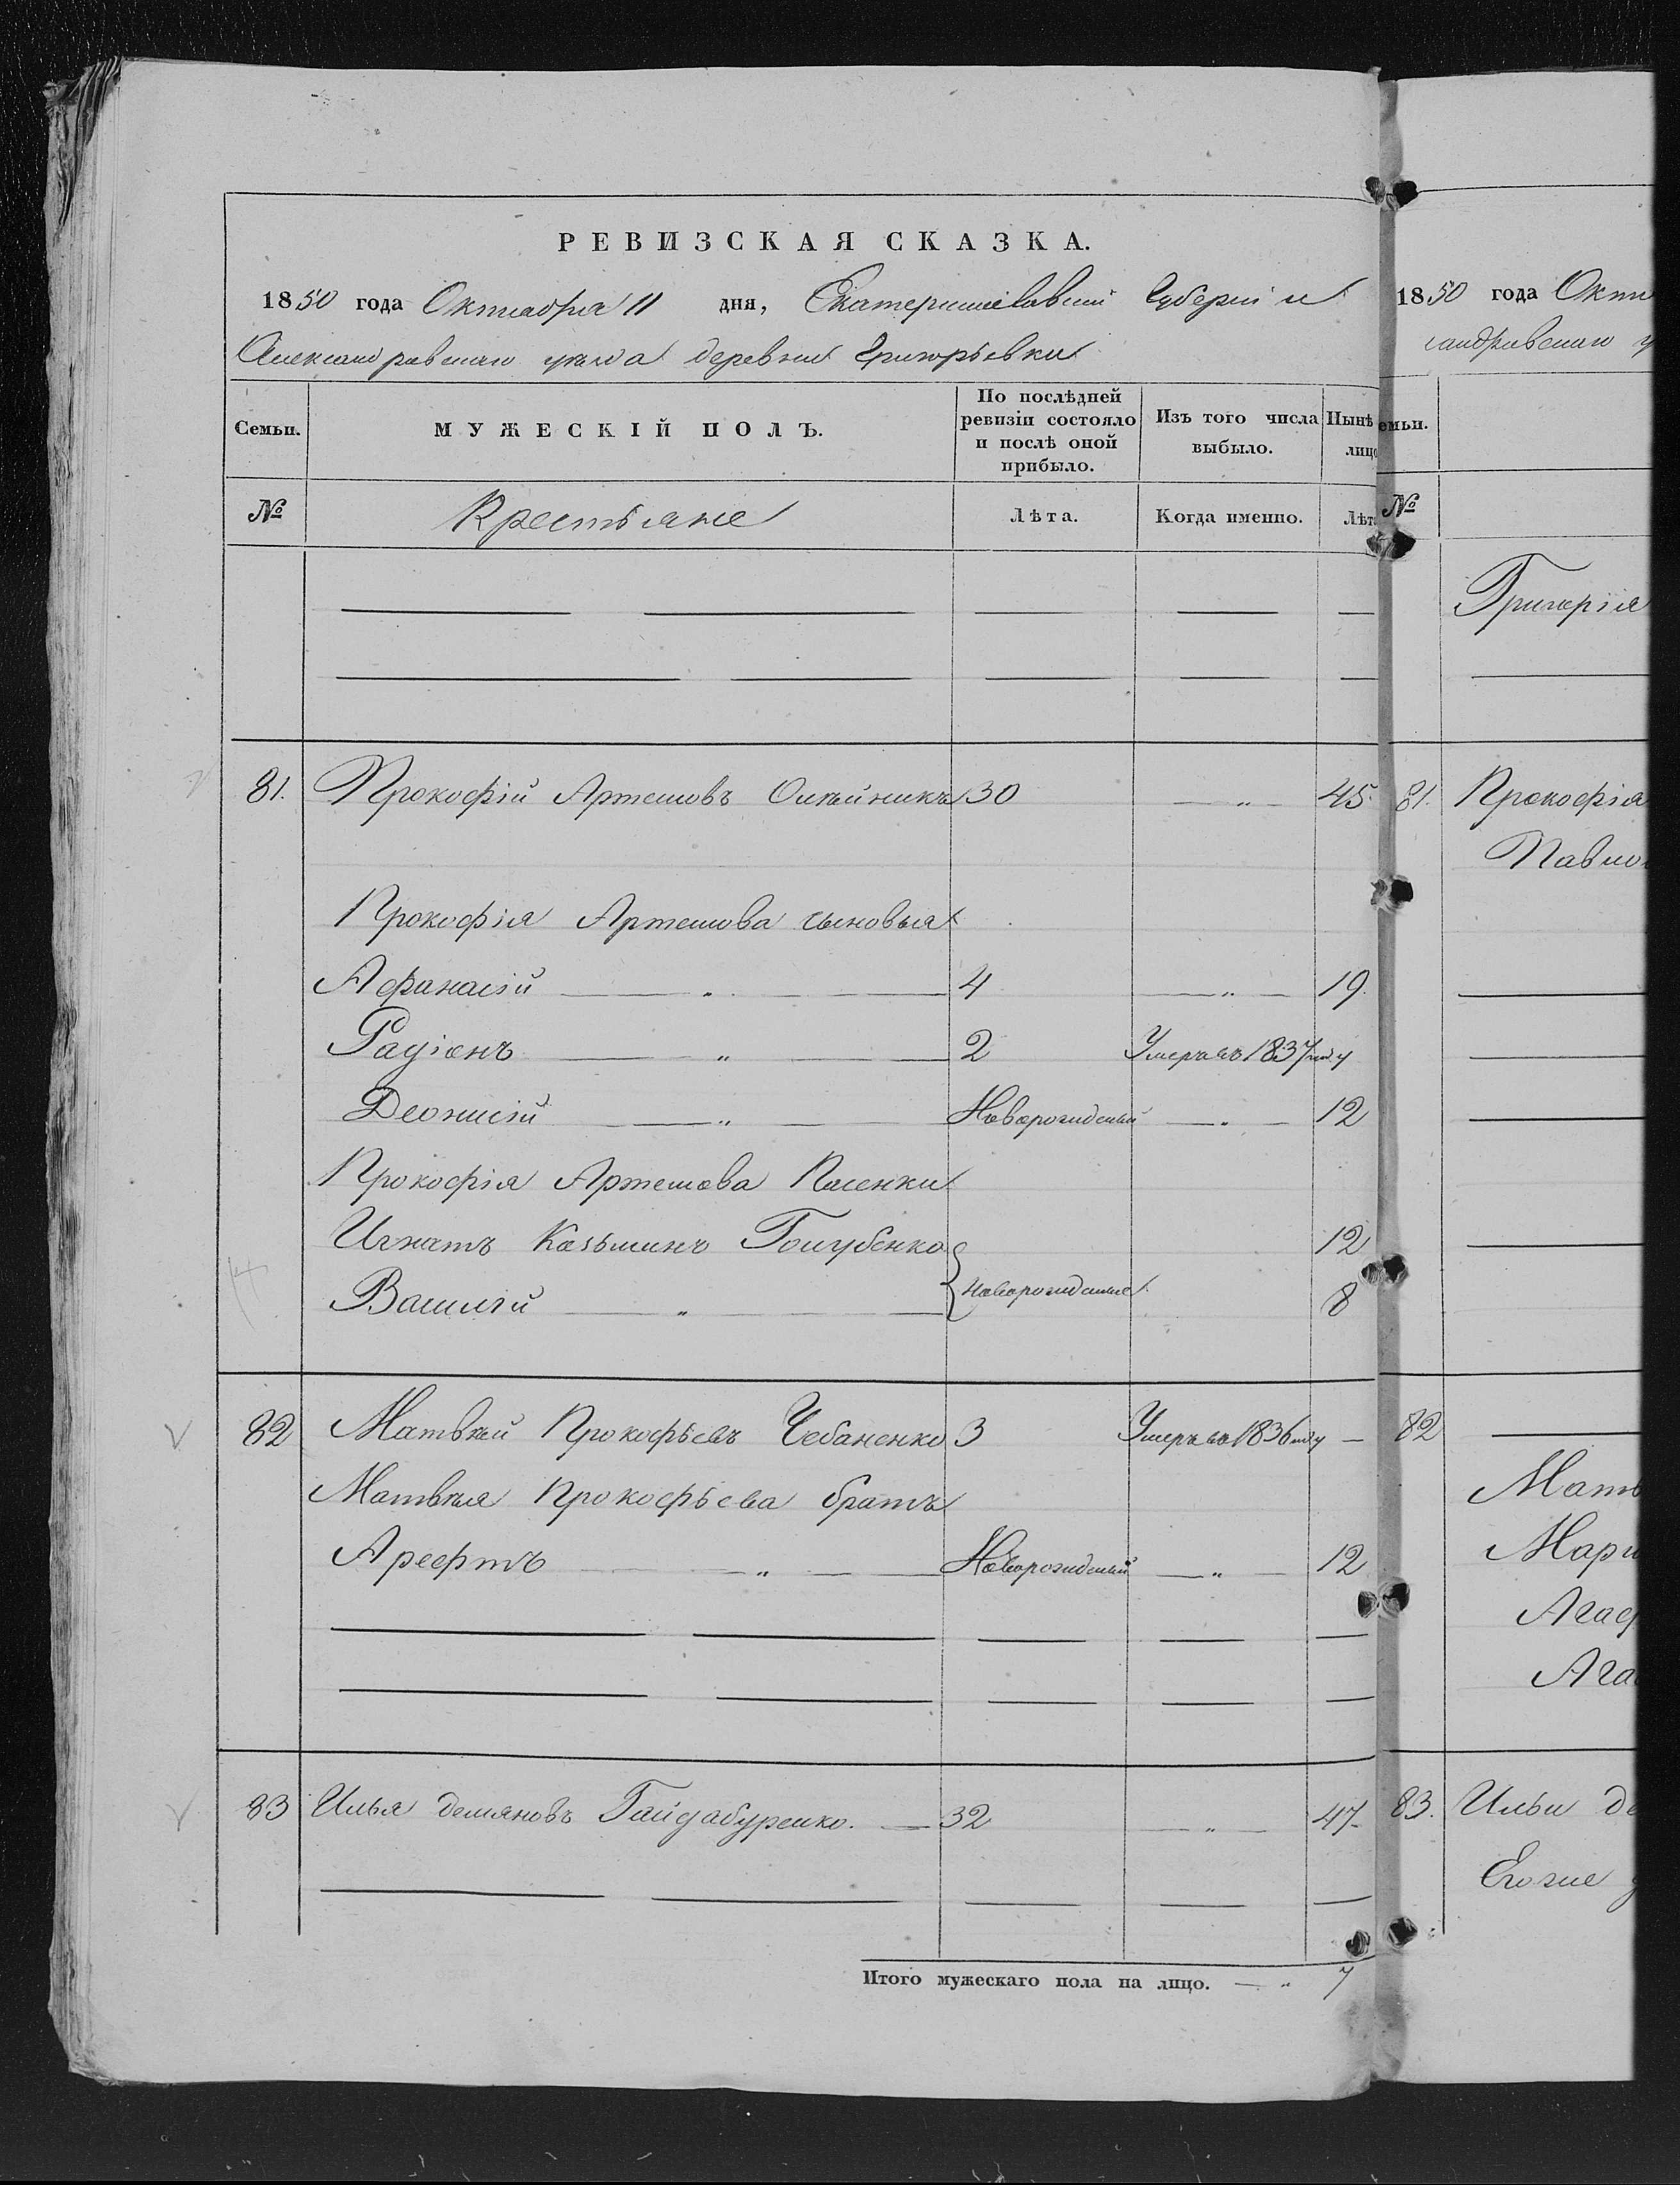 РЕВИЗСКАЯ СКАЗКА.
1850 года Октября 11 дня, Екатеринославской Губернии
Александровскаго уѣзда деревни Григорьевки
Семьи. МУЖЕСКІЙ ПОЛЪ. По послѣдней ревизіи состояло и послѣ оной прибыло. Изъ того числа выбыло. Нынѣ лицо
№ Крестьяне Лѣта. Когда именно. Лѣт
81. Прокофій Артемовъ Олѣйникъ 30 — " — 45.
Прокофія Артемова сыновья
Афанасій — " — 4 — " — 19.
Радіонъ — " — 2 Умеръ въ 1837 году
Деонисій — " — Новорожденый — " — 12
Прокофія Артемова Пасенки
Игнатъ Козьминъ Голубенко 12
Новорожденые
Василій — " — 8
82 Матвѣй Прокофьевъ Чебаненко 3 Умеръ въ 1836 году —
Матвѣя Прокофьева братъ
Арефтъ — " — Новорожденый — " — 12
83 Илья демяновъ Гайдабуренко. — 32 — " — 47.
Итого мужескаго пола на лицо. — " 7
1850 года Окт
сандровскаго у
емьи.
№
Григорія
81. Прокофія
Павло
82
Матв
Мари
Агаф
Ага
83. Ильи де
Егоже